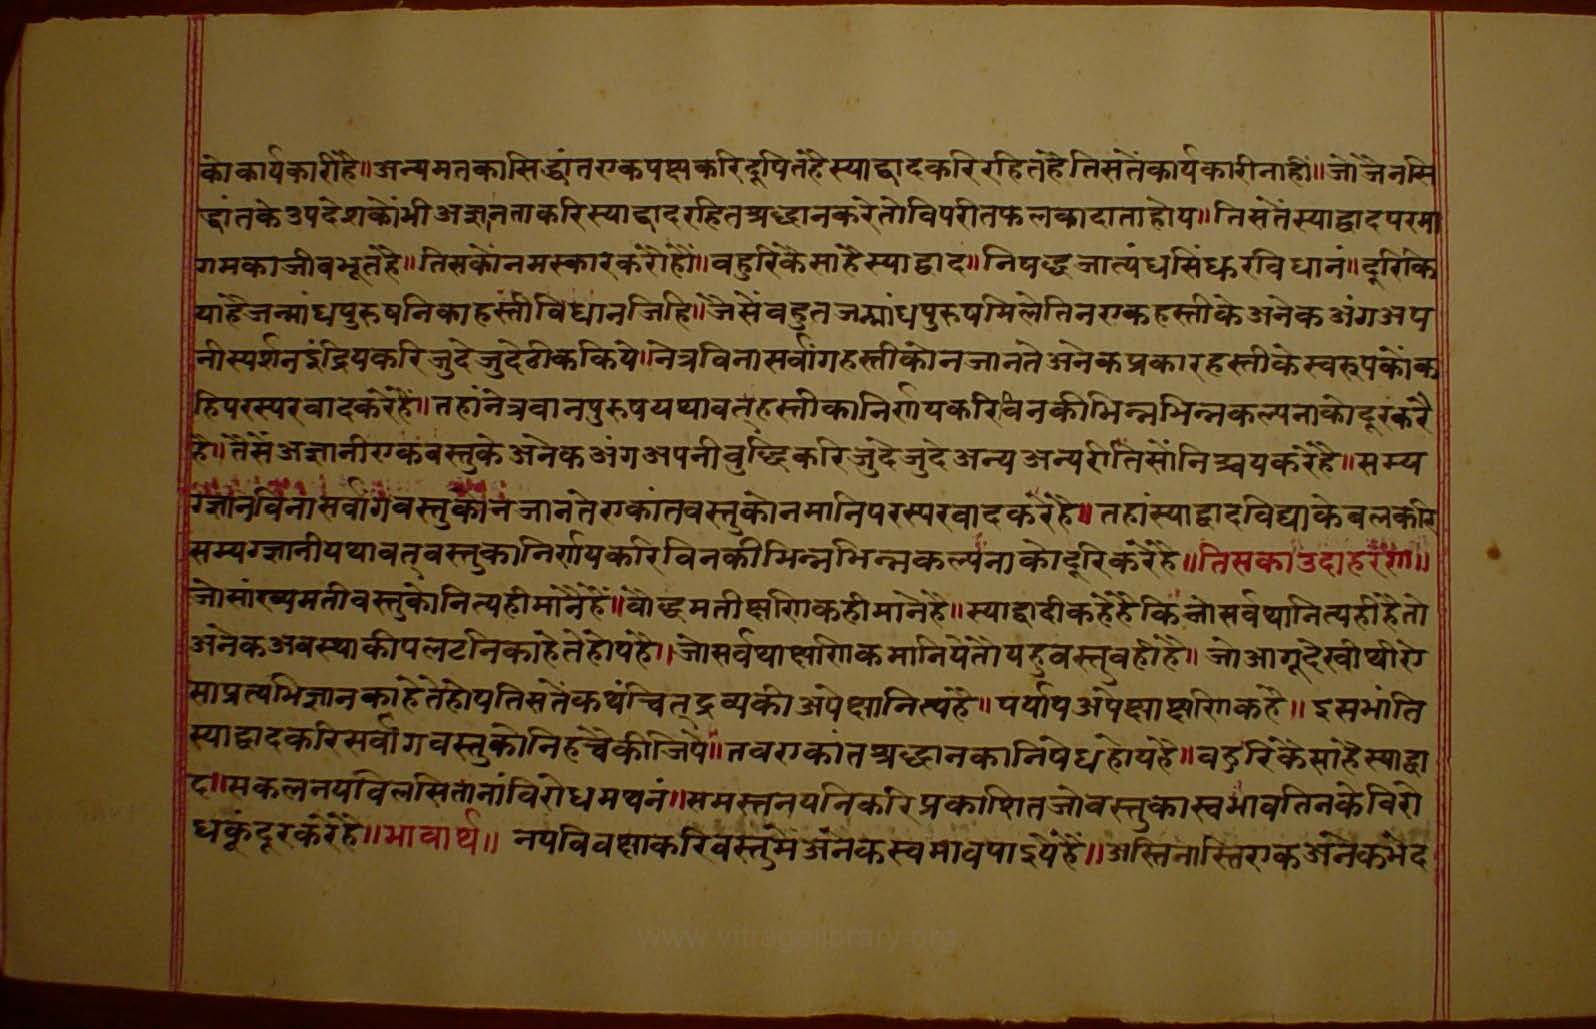 को कार्यकारी है॥ अन्यमतका सिद्धांत एक पक्ष करि दूषित है स्याद्वाद करि रहित है तिसतें कार्यकारी नाहीं॥ जो जैन सि
द्धांतके उपदेशकों भी अज्ञानता करि स्याद्वाद रहित श्रद्धान करे तो विपरीत फलका दाता होय॥ तिसतें स्याद्वाद परमा
गमका जीवभूत है॥ तिसकों नमस्कार करों हों॥ बहुरि कैसा है स्याद्वाद॥ निषद्ध जात्यंध सिंधुर विधानं॥ दूरि कि
या है जन्मांध पुरुषनिका हस्ती विधान जिहि॥ जैसें बहुत जन्मांध पुरुष मिले तिन एक हस्तीके अनेक अंग अप
नी स्पर्शन इंद्रिय करि जुदे जुदे ठीक किये॥ नेत्र विना सर्वांग हस्तीकों न जानते अनेक प्रकार हस्तीके स्वरुपकों क
हि परस्पर वाद करे हैं॥ तहां नेत्रवान पुरुष यथावत् हस्तीका निर्णय करि विनकी भिन्न भिन्न कल्पनाको दूर करै
है॥ तैसें अज्ञानी एक वस्तुके अनेक अंग अपनी बुद्धि करि जुदे जुदे अन्य अन्य रीतिसों निश्चय करे है॥ सम्य
ग्ज्ञान विना सर्वांग वस्तुकों न जानते एकांत वस्तुको न मानि परस्पर वाद करे है॥ तहां स्याद्वाद विद्याके बलकरि
सम्यग्ज्ञानी यथावत् वस्तुका निर्णय करि विनकी भिन्न भिन्न कल्पनाको दूरि करे है॥ तिसका उदाहरण॥
जो सांख्यमती वस्तुको नित्य ही मानै हैं॥ बौद्धमती क्षणिक ही माने है॥ स्याद्वादी कहै है कि जो सर्वथा नित्य ही है तो
अनेक अवस्थाकी पलटनि काहेते होय है॥ जो सर्वथा क्षणिक मानिये तो यह वस्तु वही है॥ जो आगू देखी थी ऐ
सा प्रत्यभिज्ञान काहेतें होय तिसतें कथंचित् द्रव्यकी अपेक्षा नित्य है॥ पर्याय अपेक्षा क्षणिक है॥ इस भांति
स्याद्वाद करि सर्वांग वस्तुको निहचै कीजिये॥ तब एकांत श्रद्धानका निषेध होय है॥ बहुरि कैसा है स्याद्वा
द॥ सकलनयविलसितानां विरोधमथनं॥ समस्त नयनि करि प्रकाशित जो वस्तुका स्वभाव तिनके विरो
धकूं दूर करे है॥ भावार्थ॥ नय विवक्षा करि वस्तुमें अनेक स्वभाव पाइये हैं॥ अस्ति नास्ति एक अनेक भेद
www.vitragelibrary.org